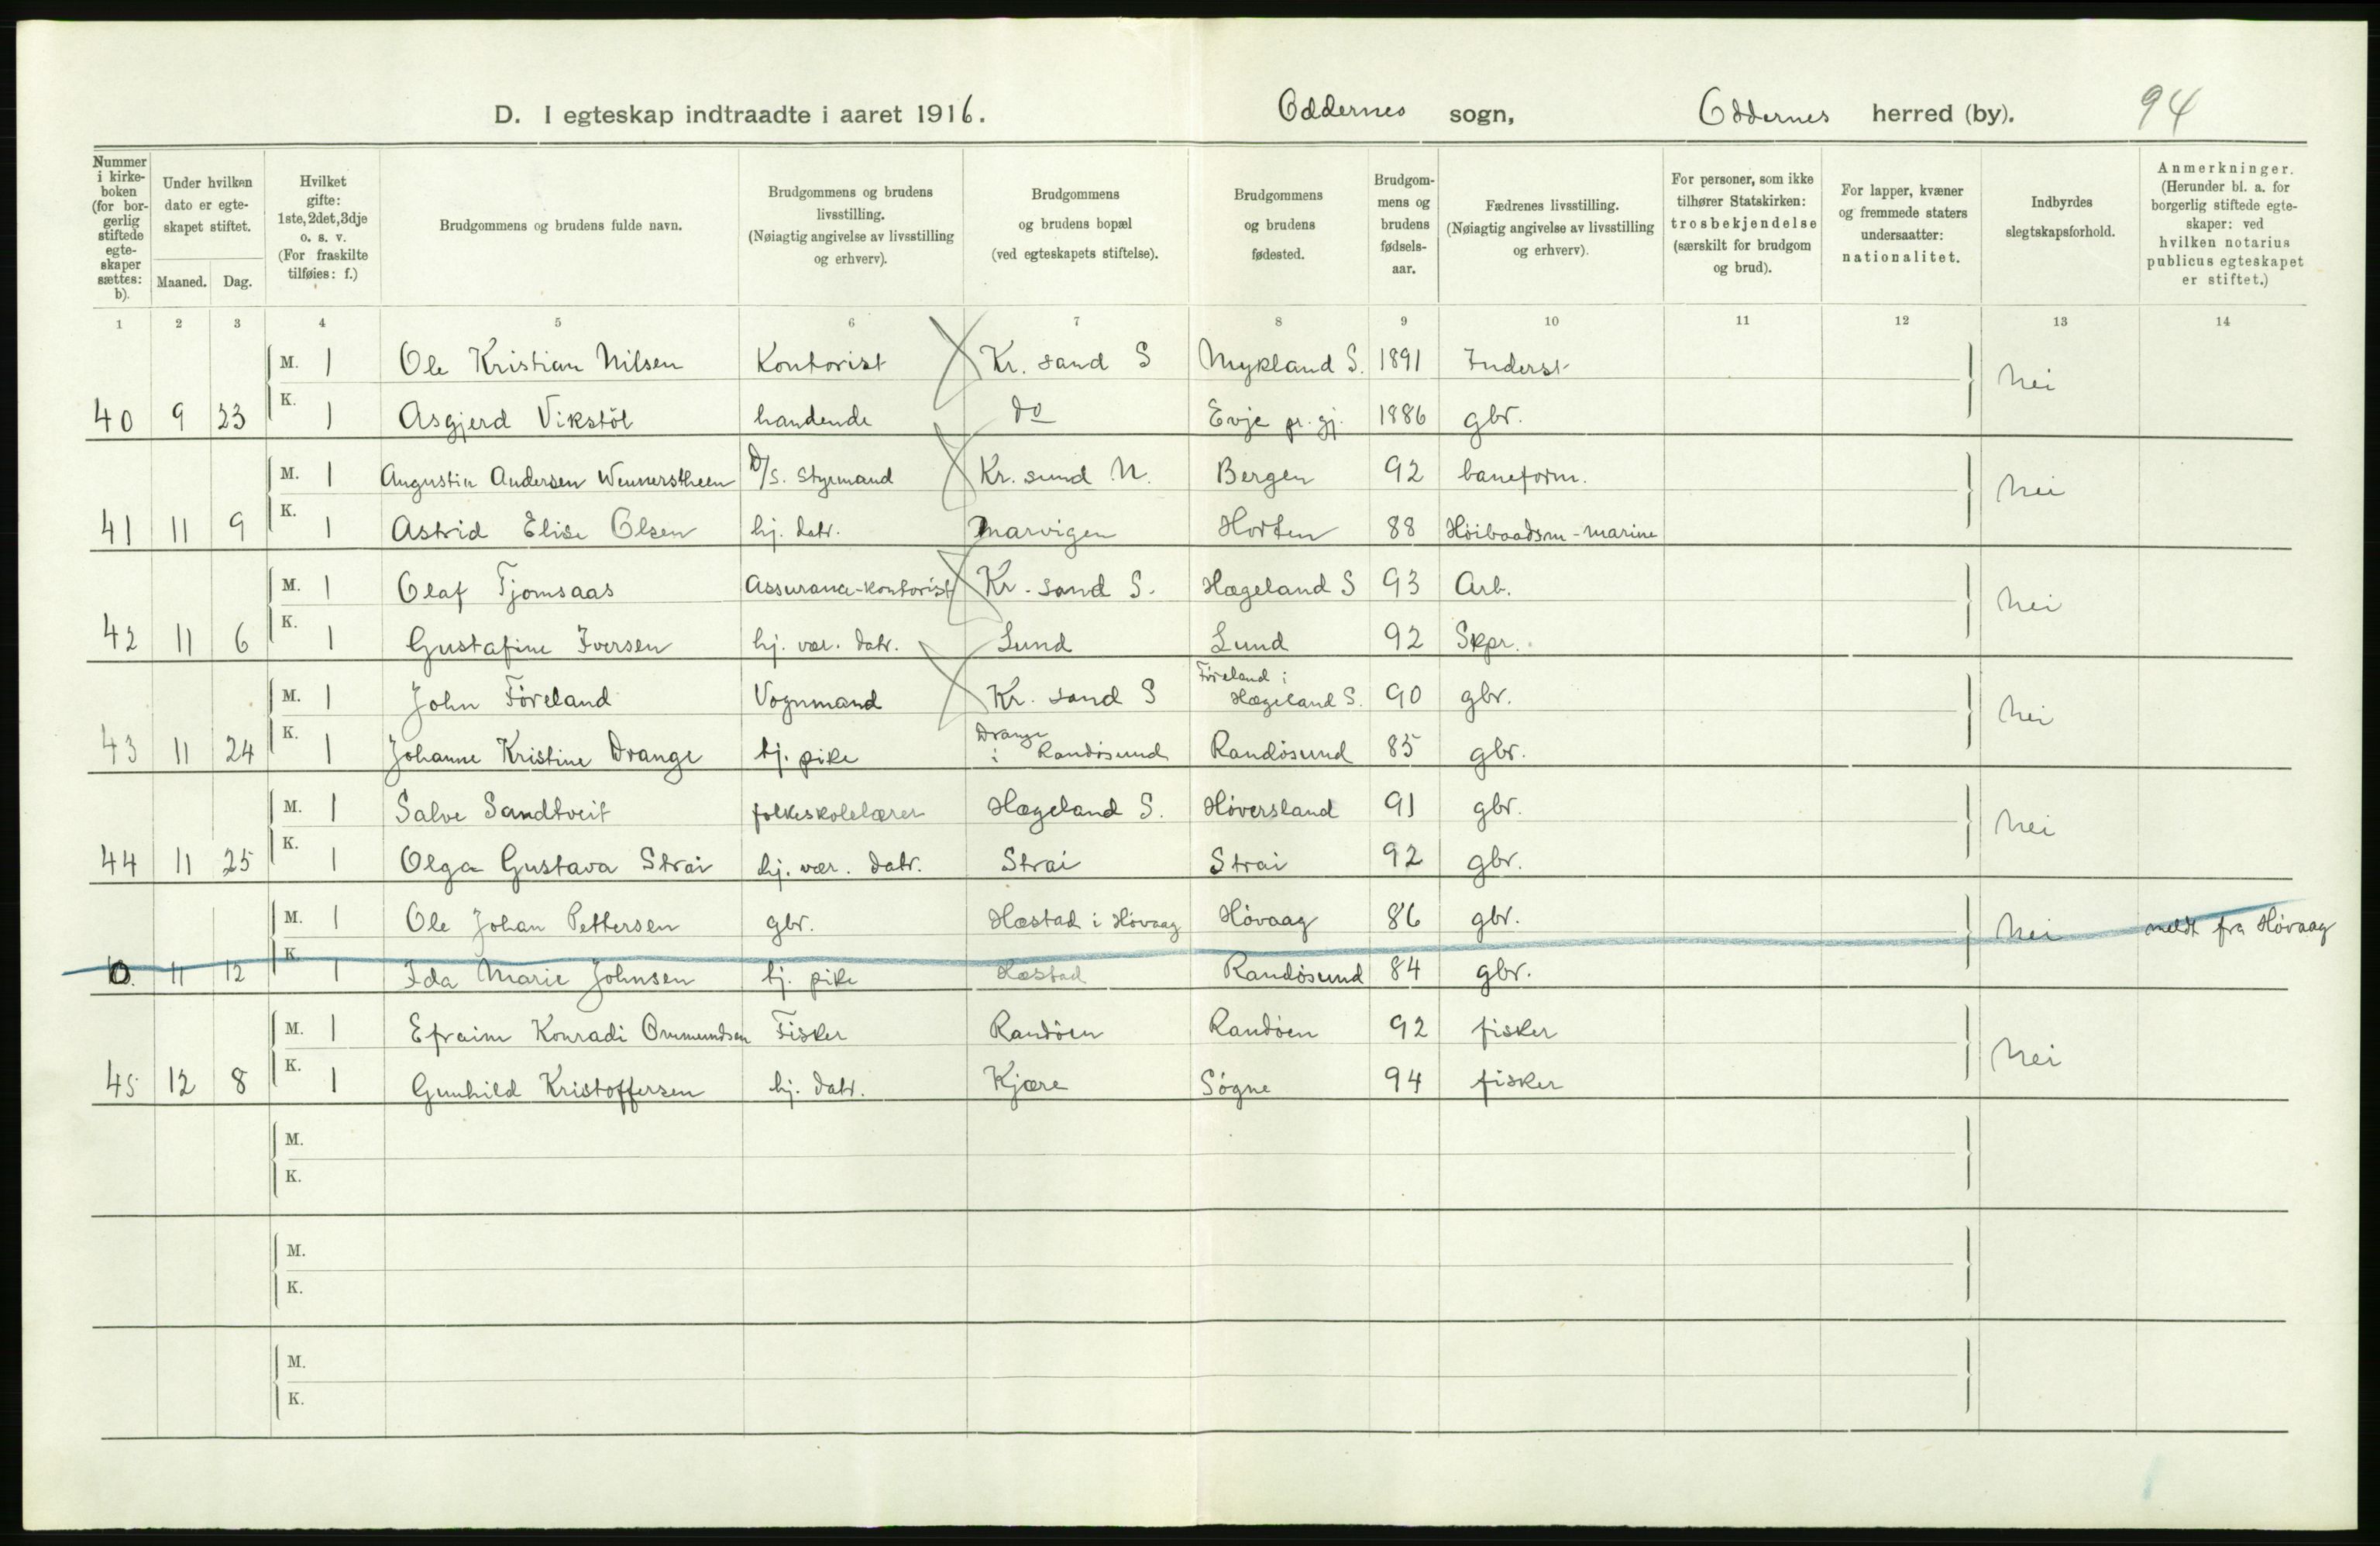 D. I egteskap indtraadte i aaret 1916. Oddernes sogn, Oddernes herred (by). 94
Nummer i kirke-boken (for bor-gerlig stiftede egte-skaper sættes: b).
Under hvilken dato er egte-skapet stiftet.
Maaned. Dag.
Hvilket gifte: 1ste, 2det, 3dje o. s. v. (For fraskilte tilføies: f.)
Brudgommens og brudens fulde navn.
Brudgommens og brudens livsstilling. (Nøiagtig angivelse av livsstilling og erhverv).
Brudgommens og brudens bopæl (ved egteskapets stiftelse).
Brudgommens og brudens fødested.
Brudgom-mens og brudens fødsels-aar.
Fædrenes livsstilling. (Nøiagtig angivelse av livsstilling og erhverv).
For personer, som ikke tilhører Statskirken: trosbekjendelse (særskilt for brudgom og brud).
For lapper, kvæner og fremmede staters undersaatter: nationalitet.
Indbyrdes slegtskapsforhold.
Anmerkninger. (Herunder bl. a. for borgerlig stiftede egte-skaper: ved hvilken notarius publicus egteskapet er stiftet.)
1 2 3 4 5 6 7 8 9 10 11 12 13 14
M. 1 Ole Kristian Nilsen Kontorist Kr. sand S Mykland S. 1891 Inderst nei
40 9 23 K. 1 Asgjerd Vikstöl handende do Evje pr. gj. 1886 gbr.
M. 1 Augustin Andersen Wennerstheen D/S. Styrmand Kr. sund N. Bergen 92 baneform. nei
41 11 9 K. 1 Astrid Elise Olsen hj. datr. Marvigen Horten 88 Höibaadsm - marine
M. 1 Olaf Tjomsaas Assurance-kontorist Kr. sand S. Hægeland S 93 Arb. nei
42 11 6 K. 1 Gustafine Iversen hj. vær. datr. Lund Lund 92 Skpr.
M. 1 John Föreland Vognmand Kr. sand S Föreland i Hægeland S. 90 gbr. nei
43 11 24 K. 1 Johanne Kristine Drange tj. pike Drange i Randösund Randösund 85 gbr.
M. 1 Salve Sandtveit folkeskolelærer Hægeland S. Höversland 91 gbr. nei
44 11 25 K. 1 Olga Gustava Strai hj. vær. datr. Strai Strai 92 gbr.
M. 1 Ole Johan Pettersen gbr. Hæstad i Hövaag Hövaag 86 gbr. nei meldt fra Hövaag
0. 11 12 K. 1 Ida Marie Johnsen tj. pike Hæstad Randösund 84 gbr.
M. 1 Efraim Konradi Ommundsen Fisker Randöen Randöen 92 fisker nei
45 12 8 K. 1 Gunhild Kristoffersen hj. datr. Kjære Sögne 94 fisker
M.
K.
M.
K.
M.
K.